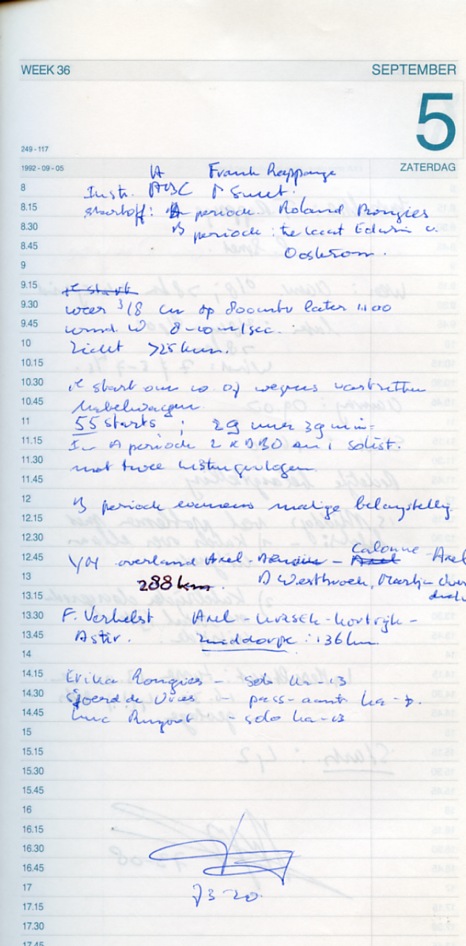 WEEK 36 SEPTEMBER
5
249-117
1992-09-05 ZATERDAG
A Frank Rappange
8 Instr. ABC P Smet.
8.15 startoff: A periode Roland Rongies
8.30 B periode: te Edwin v.
8.45 Oostrom.
9
9.15 1e start
9.30 weer 3/8 cu op 800mtr later 1100
9.45 wind W 8-10m/sec.
10 Zicht >25km.
10.15
10.30 1e start om 10 07 wegens vastzitten
10.45 kabelwagen.
11 55 starts; 29 uur 39 min
11.15 In A periode 2 x DBO en 1 solist.
11.30 met twee gevlogen
11.45
12 B periode eveneens matige belangstelling
12.15
12.30 Calonne
12.45 overland Axel - - Axel - Axel
13 288 km. D Westbroek, Martijn
13.15
13.30 F. Verhelst Axel - - Kortrijk -
13.45 Astir. Zuiddorpe: 136km
14
14.15 Erika Rongies - solo Ka-13
14.30 Sjoerd de Vries - pass-aant. Ka-7.
14.45 Luc - solo Ka-13
15
15.15
15.30
15.45
16
16.15
16.30
16.45
17
17.15
17.30
17.45